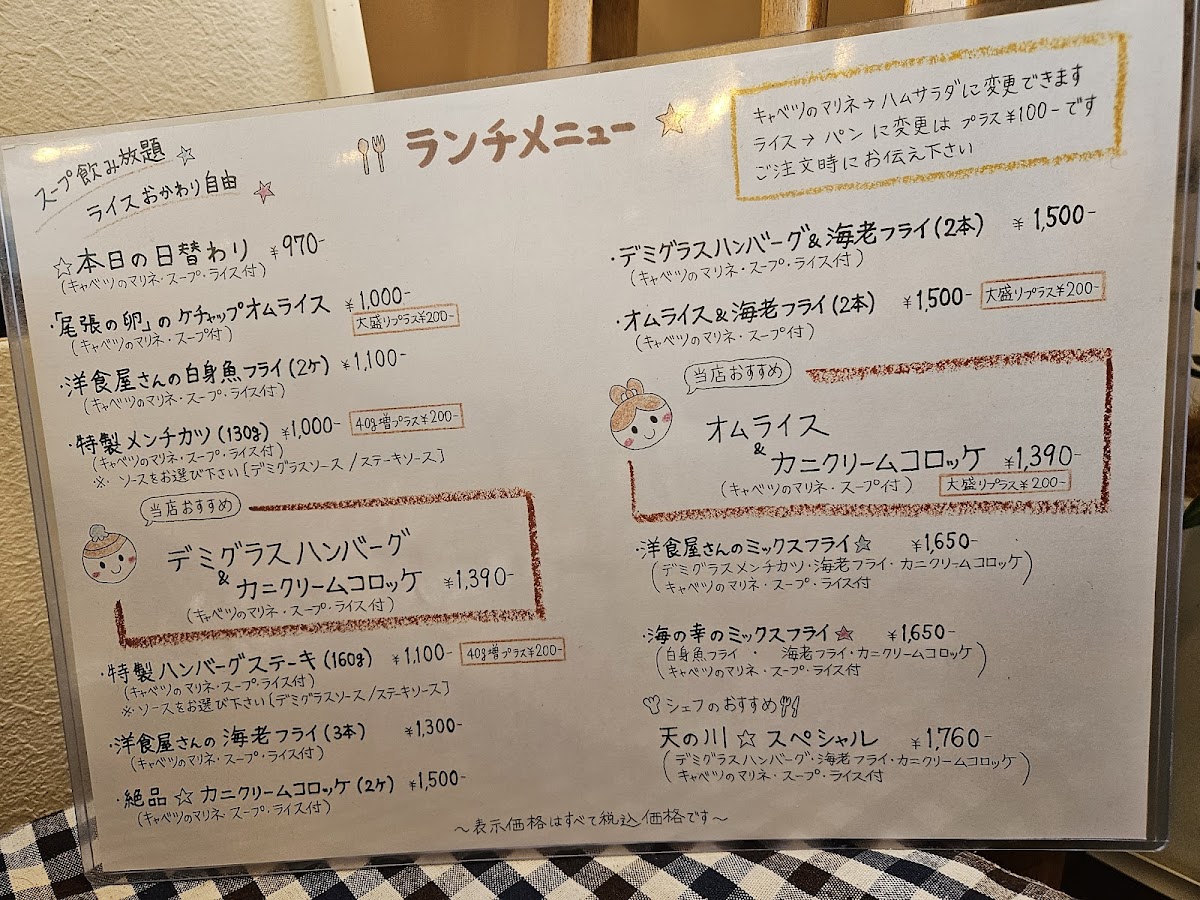 ランチメニュー
スープ飲み放題
ライスおかわり自由
キャベツのマリネ→ハムサラダに変更できます
ライス→パンに変更はプラス¥100-です
ご注文時にお伝え下さい
☆本日の日替わり ¥970-
(キャベツのマリネ・スープ・ライス付)
・「尾張の卵」のケチャップオムライス ¥1,000-
(キャベツのマリネ・スープ付)
大盛りプラス¥200-
・洋食屋さんの白身魚フライ(2ケ) ¥1,100-
(キャベツのマリネ・スープ・ライス付)
・特製メンチカツ(130g) ¥1,000- 40g増プラス¥200-
(キャベツのマリネ・スープ・ライス付)
※ソースをお選び下さい[デミグラスソース/ステーキソース]
当店おすすめ
デミグラスハンバーグ
&
カニクリームコロッケ ¥1,390-
(キャベツのマリネ・スープ・ライス付)
・特製ハンバーグステーキ(160g) ¥1,100- 40g増プラス¥200-
(キャベツのマリネ・スープ・ライス付)
※ソースをお選び下さい[デミグラスソース/ステーキソース]
・洋食屋さんの海老フライ(3本) ¥1,300-
(キャベツのマリネ・スープ・ライス付)
・絶品☆カニクリームコロッケ(2ケ) ¥1,500-
(キャベツのマリネ・スープ・ライス付)
・デミグラスハンバーグ&海老フライ(2本) ¥1,500-
(キャベツのマリネ・スープ・ライス付)
・オムライス&海老フライ(2本) ¥1,500- 大盛りプラス¥200-
(キャベツのマリネ・スープ付)
当店おすすめ
オムライス
&
カニクリームコロッケ ¥1,390-
(キャベツのマリネ・スープ付) 大盛りプラス¥200-
・洋食屋さんのミックスフライ☆ ¥1,650-
(デミグラスメンチカツ・海老フライ・カニクリームコロッケ)
(キャベツのマリネ・スープ・ライス付)
・海の幸のミックスフライ★ ¥1,650-
(白身魚フライ・海老フライ・カニクリームコロッケ)
(キャベツのマリネ・スープ・ライス付)
シェフのおすすめ
天の川☆スペシャル ¥1,760-
(デミグラスハンバーグ・海老フライ・カニクリームコロッケ)
(キャベツのマリネ・スープ・ライス付)
～表示価格はすべて税込価格です～